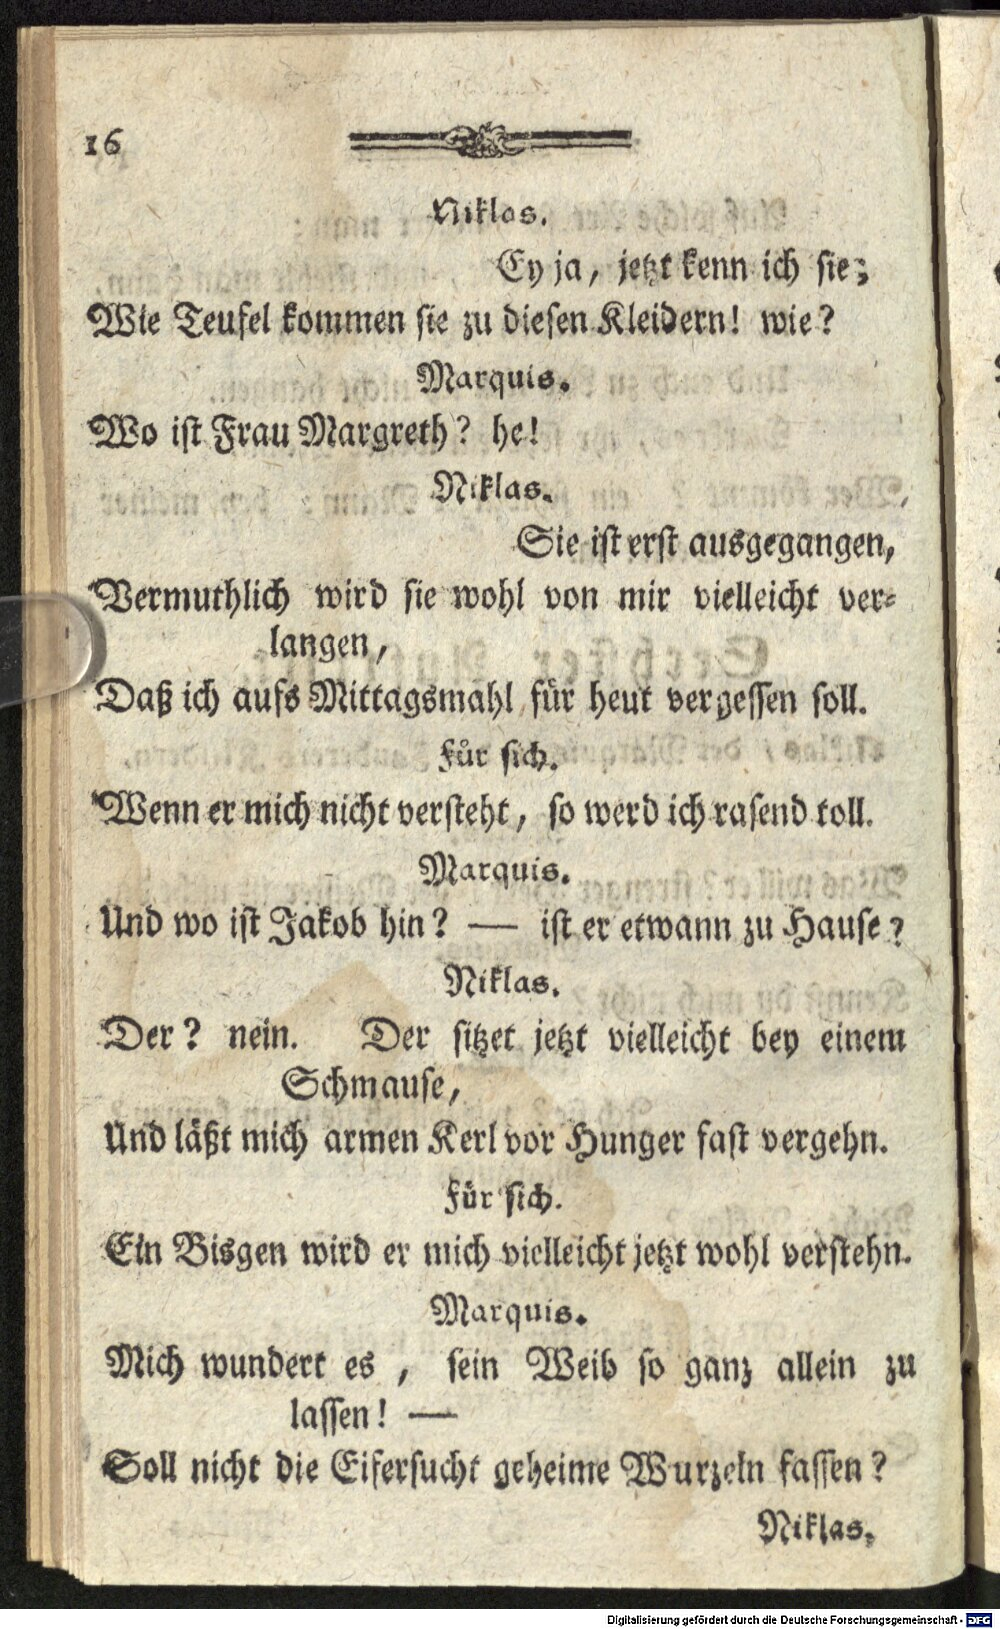 16
Niklas.
Ey ja, jetzt kenn ich sie;
Wie Teufel kommen sie zu diesen Kleidern! wie?
Marquis.
Wo ist Frau Margreth? he!
Niklas.
Sie ist erst ausgegangen,
Vermuthlich wird sie wohl von mir vielleicht ver-
langen,
Daß ich aufs Mittagsmahl für heut vergessen soll.
Für sich.
Wenn er mich nicht versteht, so werd ich rasend toll.
Marquis.
Und wo ist Jakob hin? — ist er etwann zu Hause?
Niklas.
Der? nein. Der sitzet jetzt vielleicht bey einem
Schmause,
Und läßt mich armen Kerl vor Hunger fast vergehn.
Für sich.
Ein Bisgen wird er mich vielleicht jetzt wohl verstehn.
Marquis.
Mich wundert es, sein Weib so ganz allein zu
lassen! —
Soll nicht die Eifersucht geheime Wurzeln fassen?
Niklas.
Digitalisierung gefördert durch die Deutsche Forschungsgemeinschaft - DFG